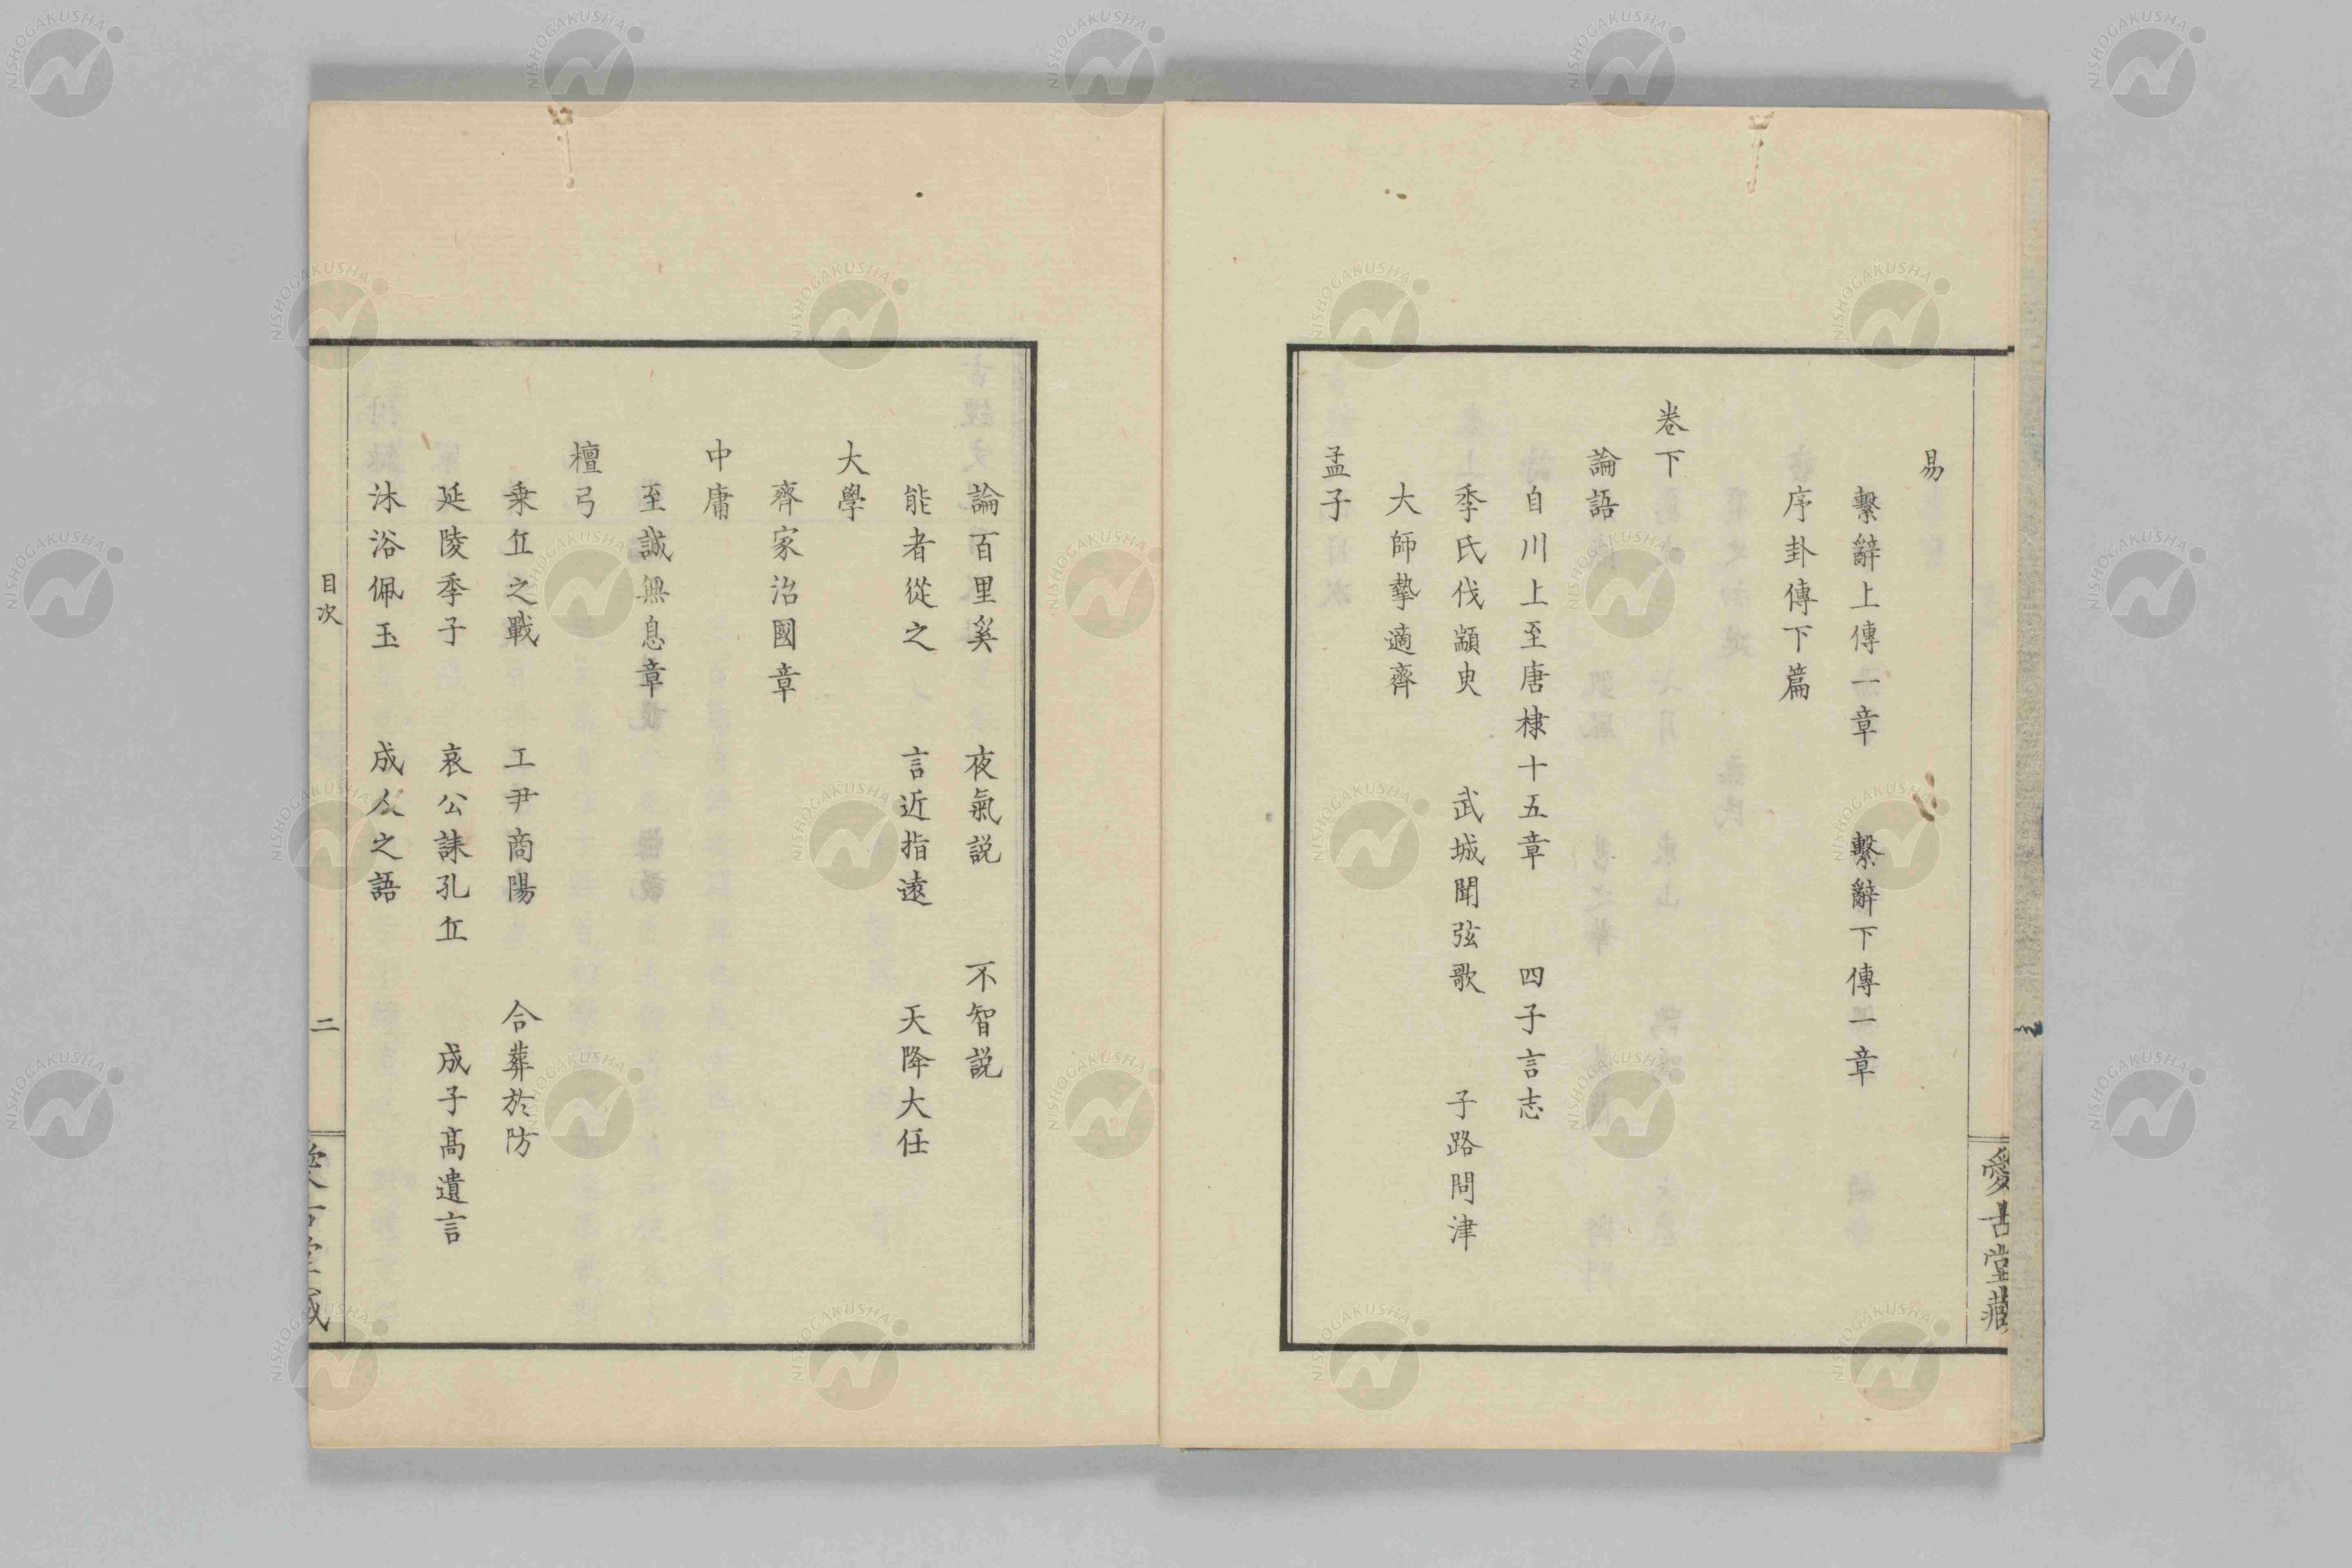 易
繫辭上傳一章　繫辭下傳一章
序卦傳下篇
卷下
論語
自川上至唐棣十五章　四子言志
季氏伐顓臾　武城聞弦歌　子路問津
大師摯適齊
孟子
愛古堂藏
論百里奚　夜氣説　不智説
能者從之　言近指遠　天降大任
大學
齊家治國章
中庸
至誠無息章
檀弓
乗丘之戰　工尹商陽　合葬於防
延陵季子　哀公誄孔丘　成子髙遺言
沐浴佩玉　成人之語
目次　二
愛古堂藏
NISHOGAKUSHA